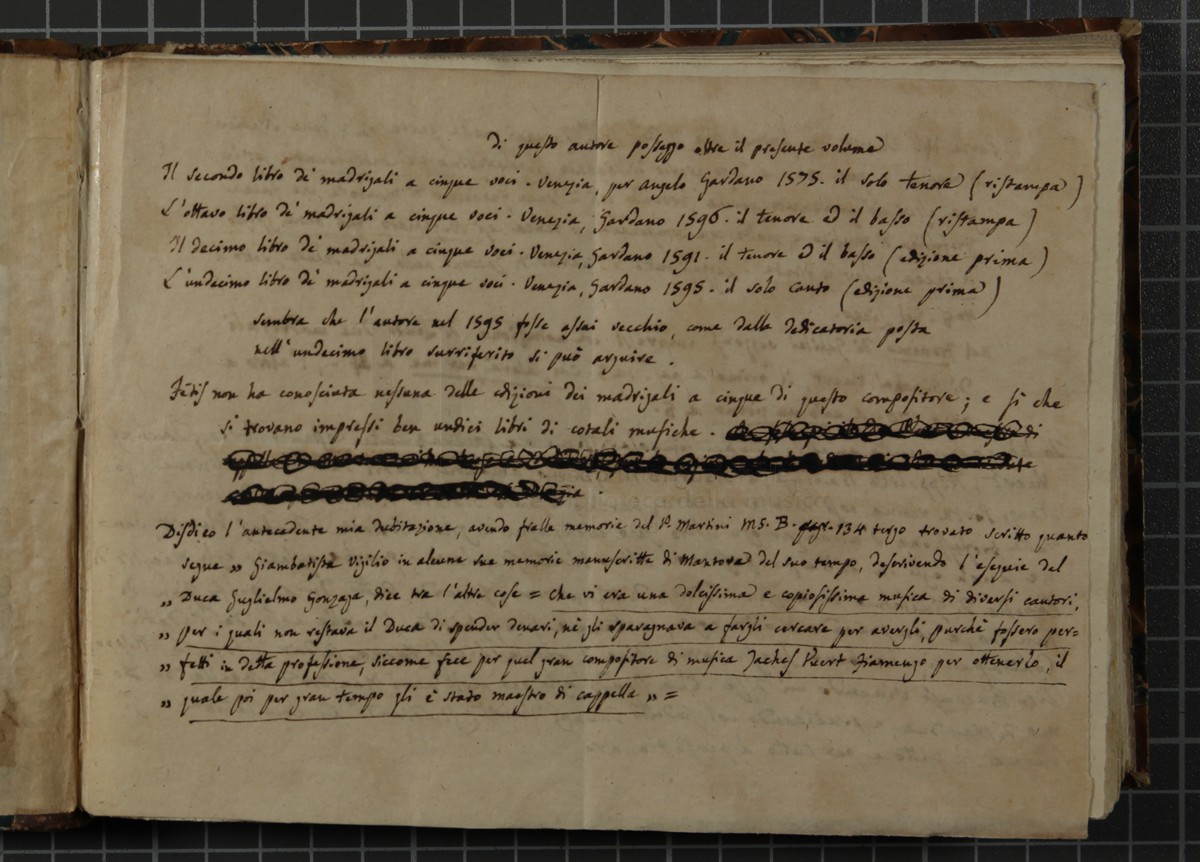 Di questo autore posseggo oltre il presente volume
Il secondo libro de' madrigali a cinque voci. Venezia, per Angelo Gardano 1575. il solo tenore (ristampa)
L'ottavo libro de' madrigali a cinque voci. Venezia, Gardano 1596. il tenore ed il basso (ristampa)
Il decimo libro de' madrigali a cinque voci. Venezia, Gardano 1591. il tenore ed il basso (edizione prima)
L'undecimo libro de' madrigali a cinque voci. Venezia, Gardano 1595. il solo canto (edizione prima)
sembra che l'autore nel 1595 fosse assai vecchio, come dalla dedicatoria posta
nell'undecimo libro surriferito si può arguire.
Fétis non ha conosciuta nessuna delle edizioni dei madrigali a cinque di questo compositore; e sì che
si trovano impressi ben undici libri di cotali musiche.
Disdico l'antecedente mia dubitazione, avendo fralle memorie del P. Martini MS. B. pag. 134 tergo trovato scritto quanto
segue „ Giambatista Vigilio in alcune sue memorie manuscritte di Mantova del suo tempo, descrivendo l'esequie del
„ Duca Guglielmo Gonzaga, dice tra l'altre cose = che vi era una dolcissima e copiosissima musica di diversi cantori,
„ per i quali non restava il Duca di spender denari, nè gli sparagnava a fargli cercare per avergli, purchè fossero per=
„ fetti in detta professione, siccome fece per quel gran compositore di musica Jaches Vuert Fiamengo per ottenerlo, il
„ quale poi per gran tempo gli è stato maestro di cappella „ =